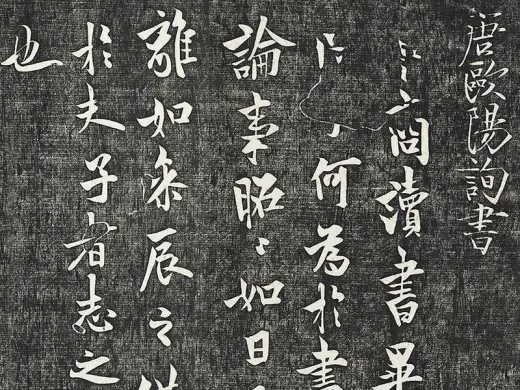 唐歐陽詢書
商讀書畢
何為於書
論事昭〻如日
離如參辰之
於夫子者志之
也